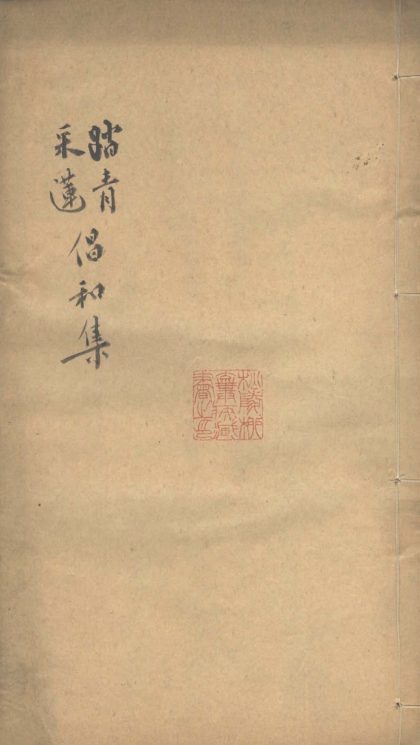 踏青
采蓮
倡和集